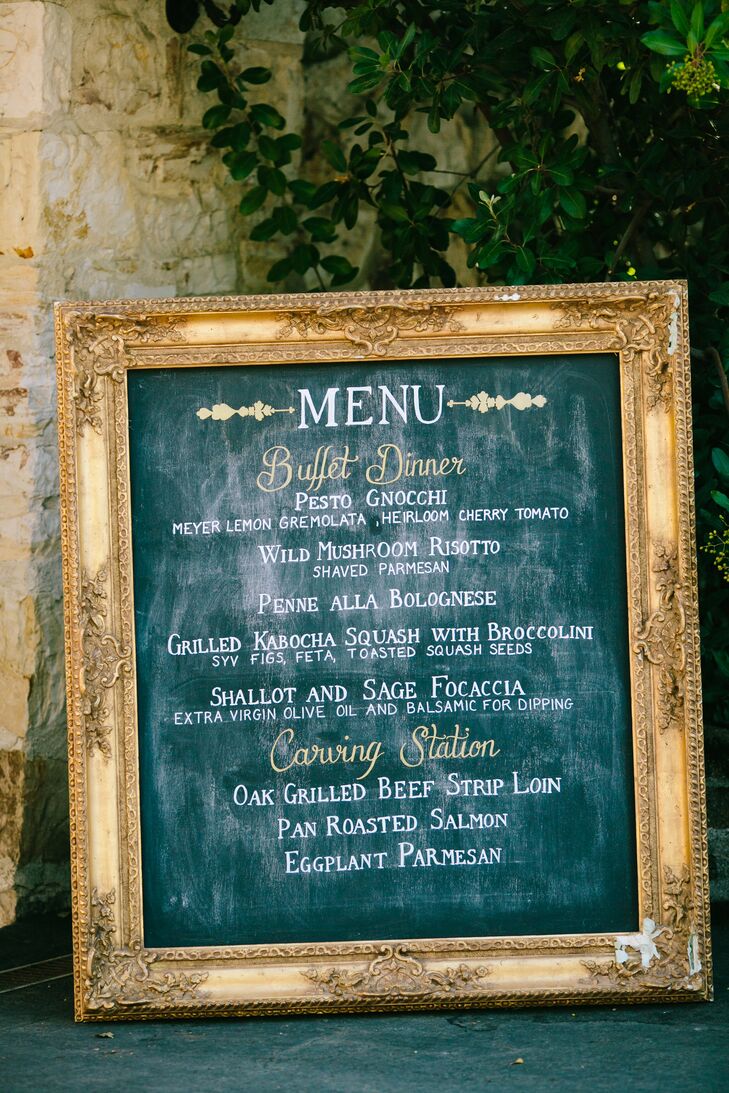 MENU
Buffet Dinner
PESTO GNOCCHI
MEYER LEMON GREMOLATA , HEIRLOOM CHERRY TOMATO
WILD MUSHROOM RISOTTO
SHAVED PARMESAN
PENNE ALLA BOLOGNESE
GRILLED KABOCHA SQUASH WITH BROCCOLINI
SYV FIGS, FETA, TOASTED SQUASH SEEDS
SHALLOT AND SAGE FOCACCIA
EXTRA VIRGIN OLIVE OIL AND BALSAMIC FOR DIPPING
Carving Station
OAK GRILLED BEEF STRIP LOIN
PAN ROASTED SALMON
EGGPLANT PARMESAN